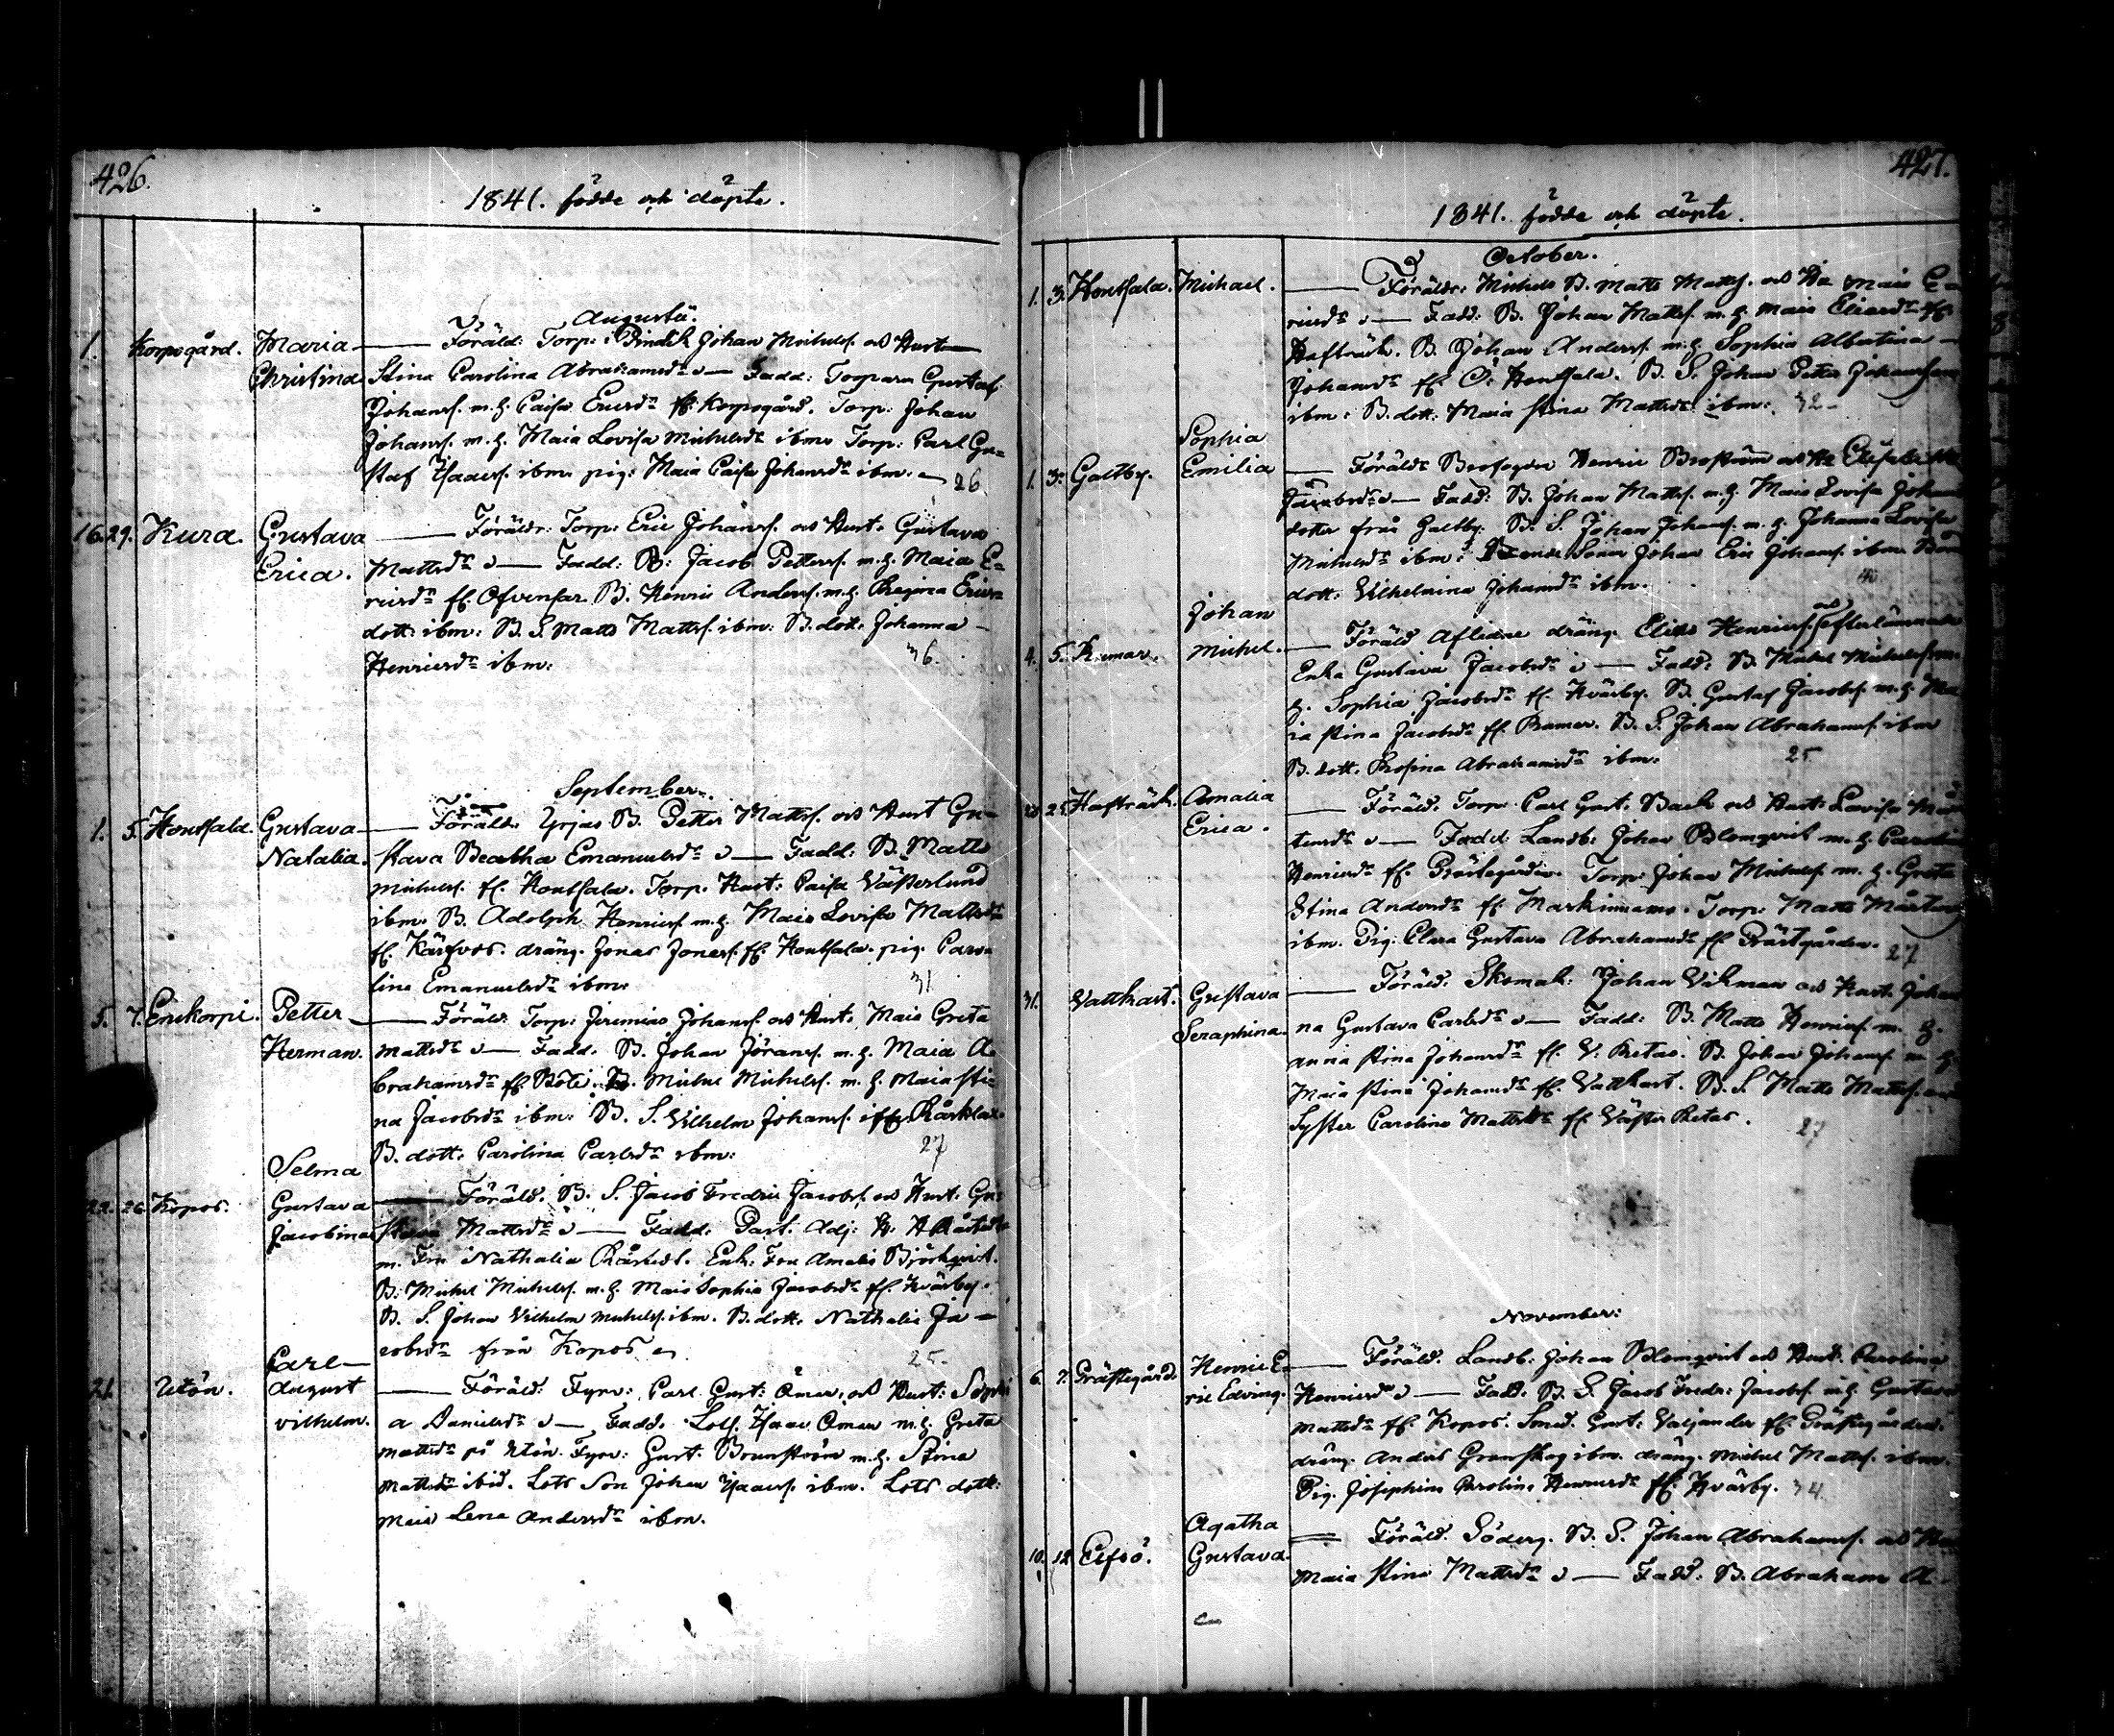 426.
1841. födde och döpte.
Augusti.
1. Korpogård. Maria — Föräld: Torp: Johan Michelss. och Hust
Christina Stina Carolina Abrahamsdr — Fadd: Torparn Gustaf
Johanss. m. h. Caisa Ericsdr fr. Korpogård. Torp: Johan
Johanss. m. h. Maia Lovisa Michelsdr ibm. Torp: Carl Gu=
staf Isaacss. ibm. pig: Maia Caisa Johansdr ibm. 26.
16. 29. Kura. Gustava — Föräldr: Torp: Eric Johanss. och Hust: Gustava
Erica. Mattsdr — Fadd: B: Jacob Petterss. m. h. Maia E=
ricsdr fr. Ofvensar. B. Henric Anderss. m. h. Regina Erics
dott: ibm: B. S. Matts Mattss. ibm: B. dott: Johanna —
Henricsdr ibm: 36.
September.
1. 5. Houtsala. Gustava — Föräld: Yrjas B. Petter Mattss. och Hust Gu=
Natalia. stava Beatha Emanuelsdr — Fadd: B. Matts
Michelss. fr. Houtsala. Torp. Hust: Caisa Västerlund
ibm. B. Adolph Henricss. m. h. Maia Lovisa Mattsdr
fr. Kärfvos. dräng. Jonas Jonass. fr. Houtsala. pig. Caro=
lina Emanuelsdr ibm: 31
5. 7. Erickorpi. Petter — Föräld: Torp: Jeremias Johanss. och Hust: Maia Greta
Herman. Mattsdr — Fadd. B. Johan Jöranss. m. h. Maia A=
brahamsdr fr. Böle. B. Michel Michelss. m. h. Maia Sti=
na Jacobsdr ibm: B. S. Vilhelm Johanss. fr. Rärklax.
B. dott: Carolina Carlsdr ibm: 27
Selma
22. 26. Kopos. Gustava — Föräld: B. S. Jacob Fredric Jacobss. och Hust: Gu=
Jacobina stava Mattsdr — Fadd: Past. Adj: H.
m. Fru Nathalia Råstedt. Enk: Fru Amalia Björkqvist.
B. Michel Michelss. m. h. Maia Sophia Jacobsdr fr. Hvärby.
B. S. Johan Vilhelm Michelss. ibm. B. dott: Nathalia Ja=
cobsdr från Kopos 25.
Carl
21. Utön. August — Föräld: Fyrv: Carl Gust: Öman och Hust: Sophi
Vilhelm. a Danielsdr — Fadd. Lots. Isaac Öman m. h. Greta
Mattsdr på Utön. Fyrv: Gust. Brunström m. h. Stina
Mattsdr ibid. Lots Son Johan Isaacss. ibm. Lots dott:
Maia Lena Andersdr ibm.
427.
1841. födde och döpte.
October.
1. 3. Houtsala. Michael. — Föräldr: Michels B. Matts Mattss. och Hu Maia E=
ricsdr — Fadd: B. Johan Mattss. m. h. Maia Eliasdr fr.
Hafträsk. B. Johan Anderss. m. h. Sophia Albertina —
Johansdr fr. O. Houtsala. B. S. Johan Petter Johansson
ibm: B. dott: Maia Stina Mattsdr ibm: 32
Sophia
1. 3. Galtby. Emilia — Föräldr Henric Broström och Hu
Jacobsdr — Fadd: B. Johan Mattss. m. h. Maia Lovisa Johans
dotter från Galtby. B. S. Johan Johanss. m. h. Johanna Lovisa
Michelsdr ibm: Bonde Sonen Johan Eric Johanss. ibm. Bond
dott: Vilhelmina Johansdr ibm. 40
Johan
4. 5. Rumar. Michel. — Föräld Aflidne dräng. Elias Henricss. och efterlämnande
Enka Gustava Jacobsdr — Fadd: B. Michel Michelss. m.
h. Sophia Jacobsdr fr. Hvärby. B. Gustaf Jacobss. m. h. Ma
ia Stina Jacobsdr fr. Rumar. B. S. Johan Abrahamss. ibm
B. dott. Rosina Abrahamsdr ibm. 25
25. Hafträsk. Amalia — Föräld: Torp Carl Gust. Back och Hust: Lovisa Mår
Erica. tensdr — Fadd Landb: Johan Blomqvist m. h. Carolina
Henricsdr fr. Prästegården. Torp: Johan Michelss. m. h. Greta
Stina Andersdr fr. Markinamo. Torp: Matts Mårtens
ibm. Pig: Clara Gustava Abrahamsdr fr Prästgården. 27
31. Vattkast. Gustava — Föräld: Skomak: Johan Vikman och Hust. Johan
Seraphina. na Gustava Carlsdr — Fadd: B. Matts Henricss. m. h.
Anna Stina Johansdr fr. V. Retais. B. Johan Johanss. m. h.
Maia Stina Johansdr fr. Vattkast. B. S. Matts Mattss. och
Syster Carolina Mattsdr fr. Väster Retais. 27
November:
6. 7. Prästegård. Henric E= — Föräld. Landb: Johan Blomqvist och Hust. Carolina
ric Edving. Henricsdr — Fadd: B. S. Jacob Fredr: Jacobss. m. h. Gustava
Mattsdr fr. Kopos. Smed. Gust: Valjander fr. Prästegården.
dräng. Anders Granskog ibm. dräng. Michel Mattss. ibm.
Pig. Josephina Carolina Henricsdr fr. Hvärby. 34.
Agatha
10. 12 Elfsö. Gustava. — Föräld. Söderg. B. S. Johan Abrahamss. och Hu
Maia Stina Mattsdr — Fadd. B. Abraham A=